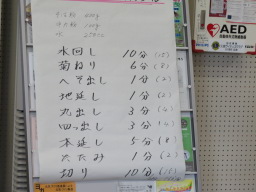 水回し 10分(15)
菊ねり 6分(8)
へそ出し 1分(2)
地延し 1分(2)
丸出し 3分(4)
四つ出し 3分(4)
本延し 5分(8)
たたみ 1分(2)
切り 10分(15)
AED